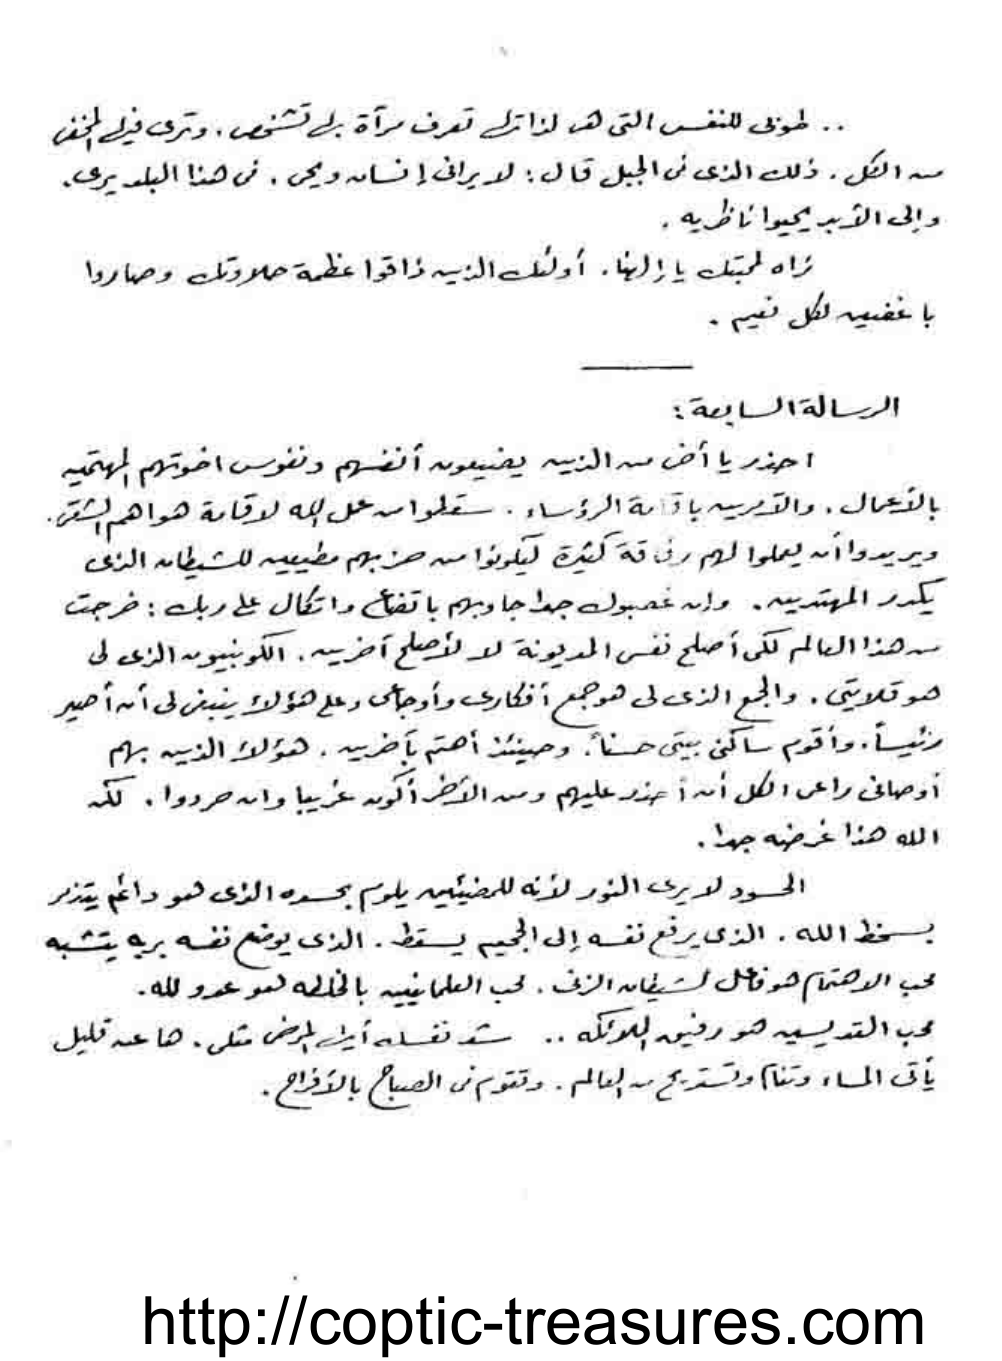 .. طوبى للنفس التى هى لذاتك تعرف مرآة بك تشخص . وترى فيك المخفى
من الكل . ذلك الذى فى الجبل قال : لا يرانى إنسان ويحى . فى هذا البلد يرى .
وإلى الأبد يحيوا ناظريه .
آه لمحبتك يا إلهنا . أولئك الذين ذاقوا عظمة حلاوتك وصاروا
باغضين لكل نعيم .
الرسالة السابعة :
احذر يا أخى من الذين يضيعون أنفسهم ونفوس اخوتهم المهتمين
بالأعمال . والآمرين باقامة الرؤساء . سقطوا من عمل الله لاقامة هواهم الشقى .
ويريدوا أن يعملوا لهم رفاقة كثيرة ليكونوا من حزبهم مطيعين للشيطان الذى
يكدر المهتدين . وإن غصبوك جدا جاوبهم باتضاع واتكال على ربك : خرجت
من هذا العالم لكى أصلح نفسى المديونة لا لأصلح آخرين . الكونبيون الذى لى
هو قلايتى . والجمع الذى لى هو جمع أفكارى وأوجاعى وعلى هؤلاء ينبغى لى أن أصير
رئيساً . وأقوم ساكنى بيتى حسناً . وحينئذ أهتم بآخرين . هؤلاء الذين بهم
أوصانى راعى الكل أن أحذر عليهم ومن الأخر أكون غريبا وان حردوا . لكن
الله هذا غرضه جدا .
الحسود لا يرى النور لأنه للمضيئين يلوم بحسده الذى هو دائم يتذمر
بسخط الله . الذى يرفع نفسه إلى الجحيم يسقط . الذى يوضع نفسه بربه يتشبه
محب الاهتمام هو فاعل لشيطان الزنى . محب العلمانيين بالخلطه هو عدو لله .
محب القديسين هو رفيق الملائكه .. شد نفسك أيها المرضى مثلى . ها عن قليل
يأتى المساء وتنام وتستريح من العالم . وتقوم فى الصباح بالأفراح .
http://coptic-treasures.com